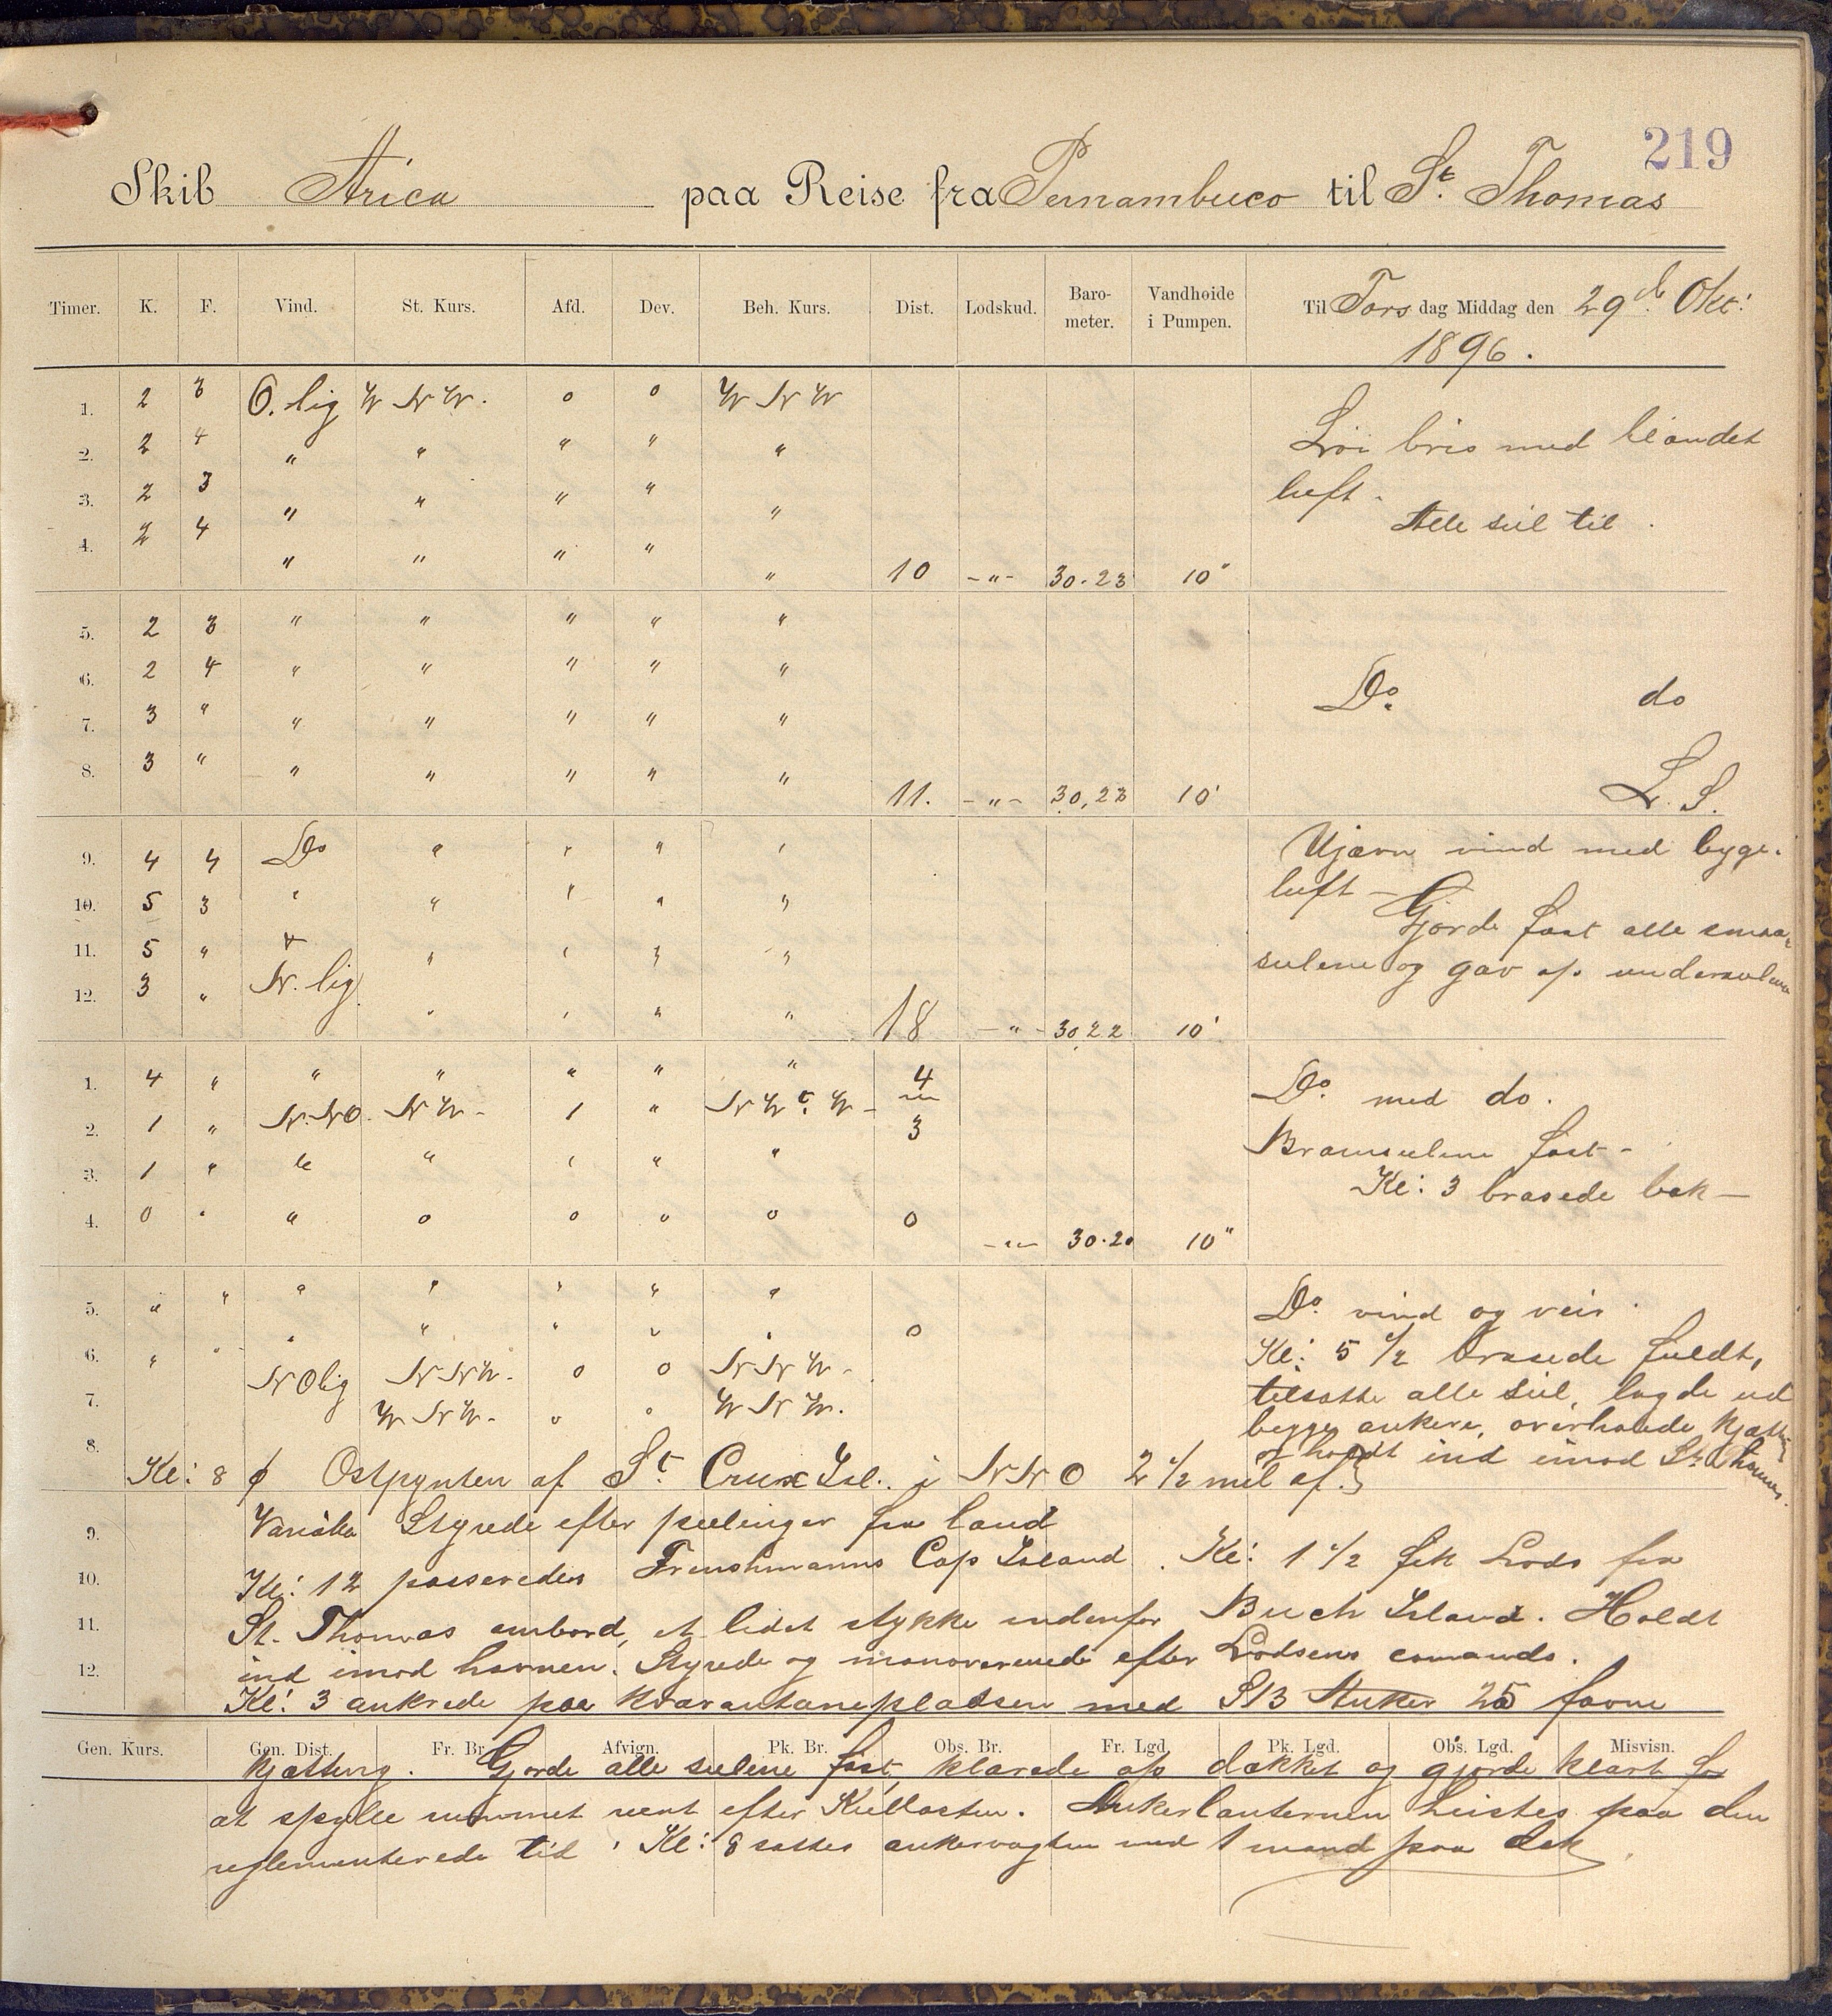 219
Skib Arica paa Reise fra Pernambuco til St. Thomas
Timer. K. F. Vind. St. Kurs. Afd. Dev. Beh. Kurs. Dist. Lodskud. Baro-meter. Vandhøide i Pumpen. Til Tors dag Middag den 29de Okt: 1896.
1. 2 3 O. lig W N W. o o W N W
2. 2 4 " " " " " Løi bris med blandet
3. 2 3 " " " " " luft.
4. 2 4 " " " " " 10 -"- 30.23 10" Alle seil til.
5. 2 3 " " " " "
6. 2 4 " " " " " Do. do
7. 3 " " " " " "
8. 3 " " " " " " 11. -"- 30,23 10' L. S.
9. 4 4 Do " " " " Ujævn vind med byge.
10. 5 3 " " " " " luft - Gjorde fast alle smaa-
11. 5 " " " " " " seilene og gav op underseilene
12. 3 " N. lig " " " " 18 -"- 30,22 10'
1. 4 " " " " " " 4 Do. med do.
2. 1 " N.NO. N W - 1 " N W t. W - 3 Bramseilene fast -
3. 1 " " " " " " Kl: 3 brasede bak -
4. 0 " " o o " o o -"- 30.20 10"
5. " " " " " " " Do. vind og veir.
6. " " " " " " " o Kl: 5 1/2 brasede fuldt,
7. N O lig N N W. o o N N W - tilsatte alle seil, lagde ud
8. W N W - o o W N W. begge ankere, overhalede kjætting
og holdt ind imod St. Thomas.
Kl: 8 φ Ostpynten af St. Crux Isl. i N N O 2 1/2 mil af.
9. Variabe Styrede efter peilinger fra land
10. Kl: 12 passeredes Frenshmanns Cap Island. Kl: 1 1/2 fik Lods fra
11. St. Thomas ombord, et lidet stykke indenfor Buch Island. Holdt
12. ind imod havnen. Styrede og manøverende efter Lodsens comando.
Kl: 3 ankrede paa kvarantæneplatsen med StB Anker 25 favne
Gen. Kurs. Gen. Dist. Fr. Br. Afvign. Pk. Br. Obs. Br. Fr. Lgd. Pk. Lgd. Obs. Lgd. Misvisn.
kjætting. Gjorde alle seilene fast, klarede op dækket og gjorde klart for
at spylle rummet rent efter Kullasten. Ankerlanternen heistes paa den
reglementerede tid. Kl: 8 sattes ankervagten med 1 mand paa dæk.